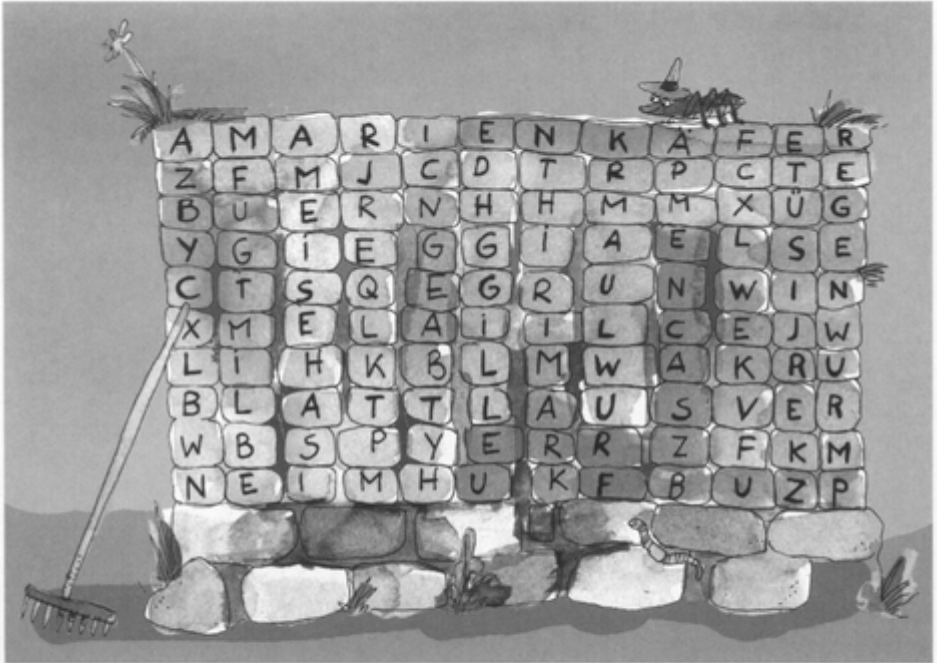 A M A R I E N K Ä F E R
Z F M J C D T R P C T E
B U E R N H H M M X Ü G
Y G I E G G I A E L S E
C T S Q E G R U N W I N
X M E L A I I L C E J W
L I H K B L M W A K R U
B L A T T L A U S V E R
W B S P Y E R R Z F K M
N E I M H U K F B U Z P